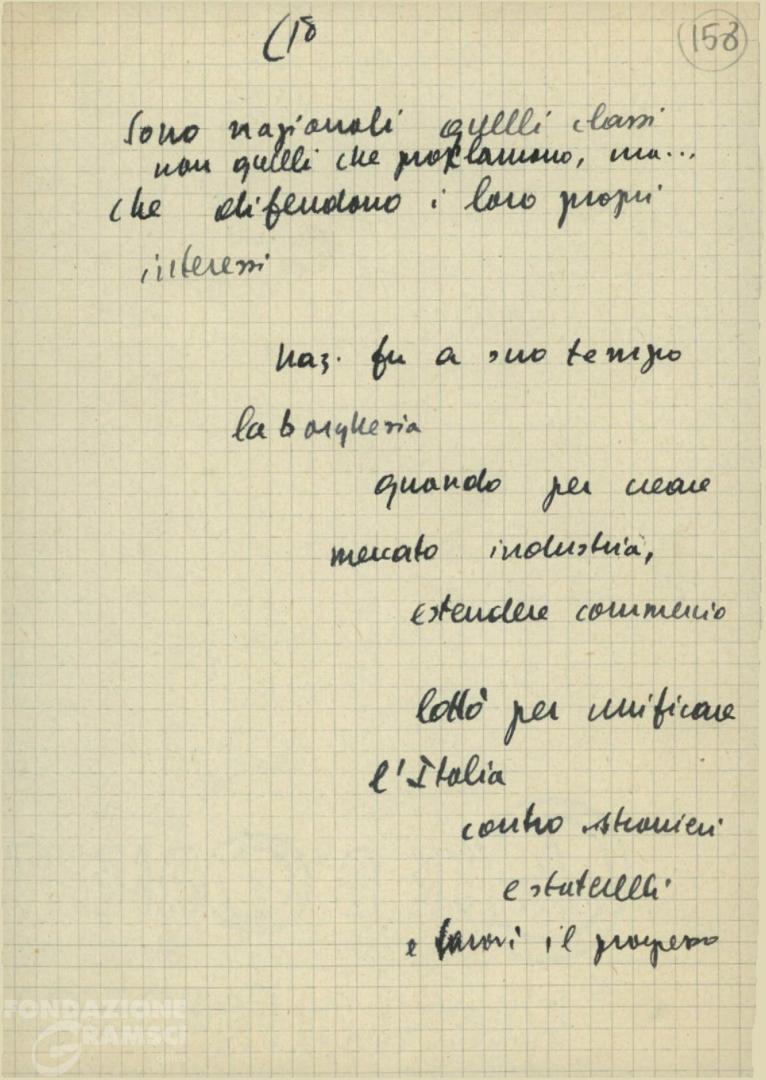 (18
158
Sono nazionali quelli classi
non quelli che proclamano, ma...
che difendono i loro propri
interessi
naz. fu a suo tempo
la borghesia
quando per creare
mercato industria,
estendere commercio
lottò per unificare
l'Italia
contro stranieri
e staterelli
e favorì il progresso
FONDAZIONE
GRAMSCI